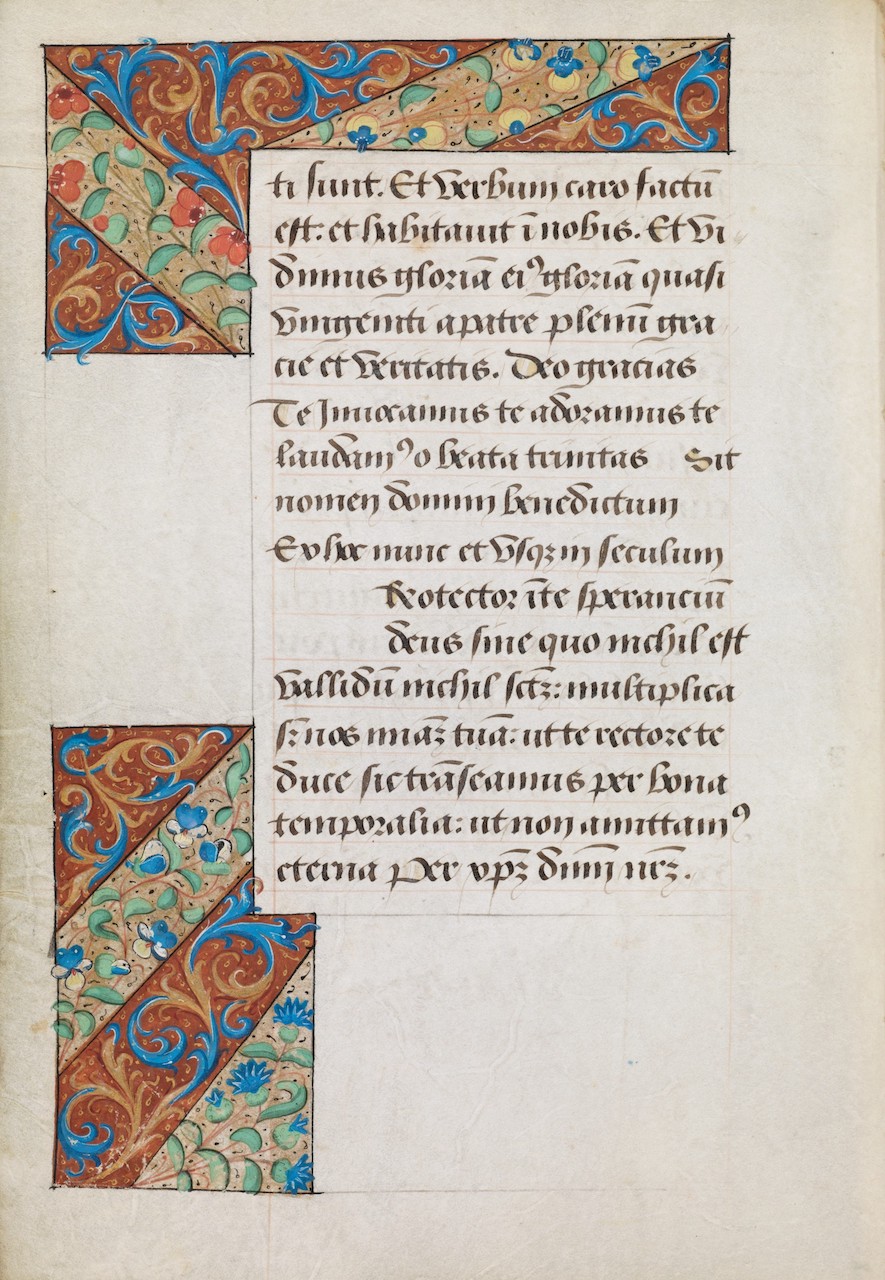 ti sunt. Et verbum caro factū
est: et habitauit ī nobis. Et vi
dimus gloriā eiꝰ gloriā quasi
vnigeniti a patre plenū gra
cie et veritatis. Deo gracias
Te Inuocamus te adoramus te
laudamꝰ o beata trinitas Sit
nomen domini benedictum
Ex hoc nunc et vsqꝫ in seculum
Protector īte sperancium̄
deus sine quo nichil est
vallidū nichil sctꝫ: multiplica
sꝛ nos miāꝫ tuā: ut te rectore te
duce sic trāseamus per bona
temporalia: ut non amittamꝰ
eterna Per xpꝫ dnm̄ nrꝫ.